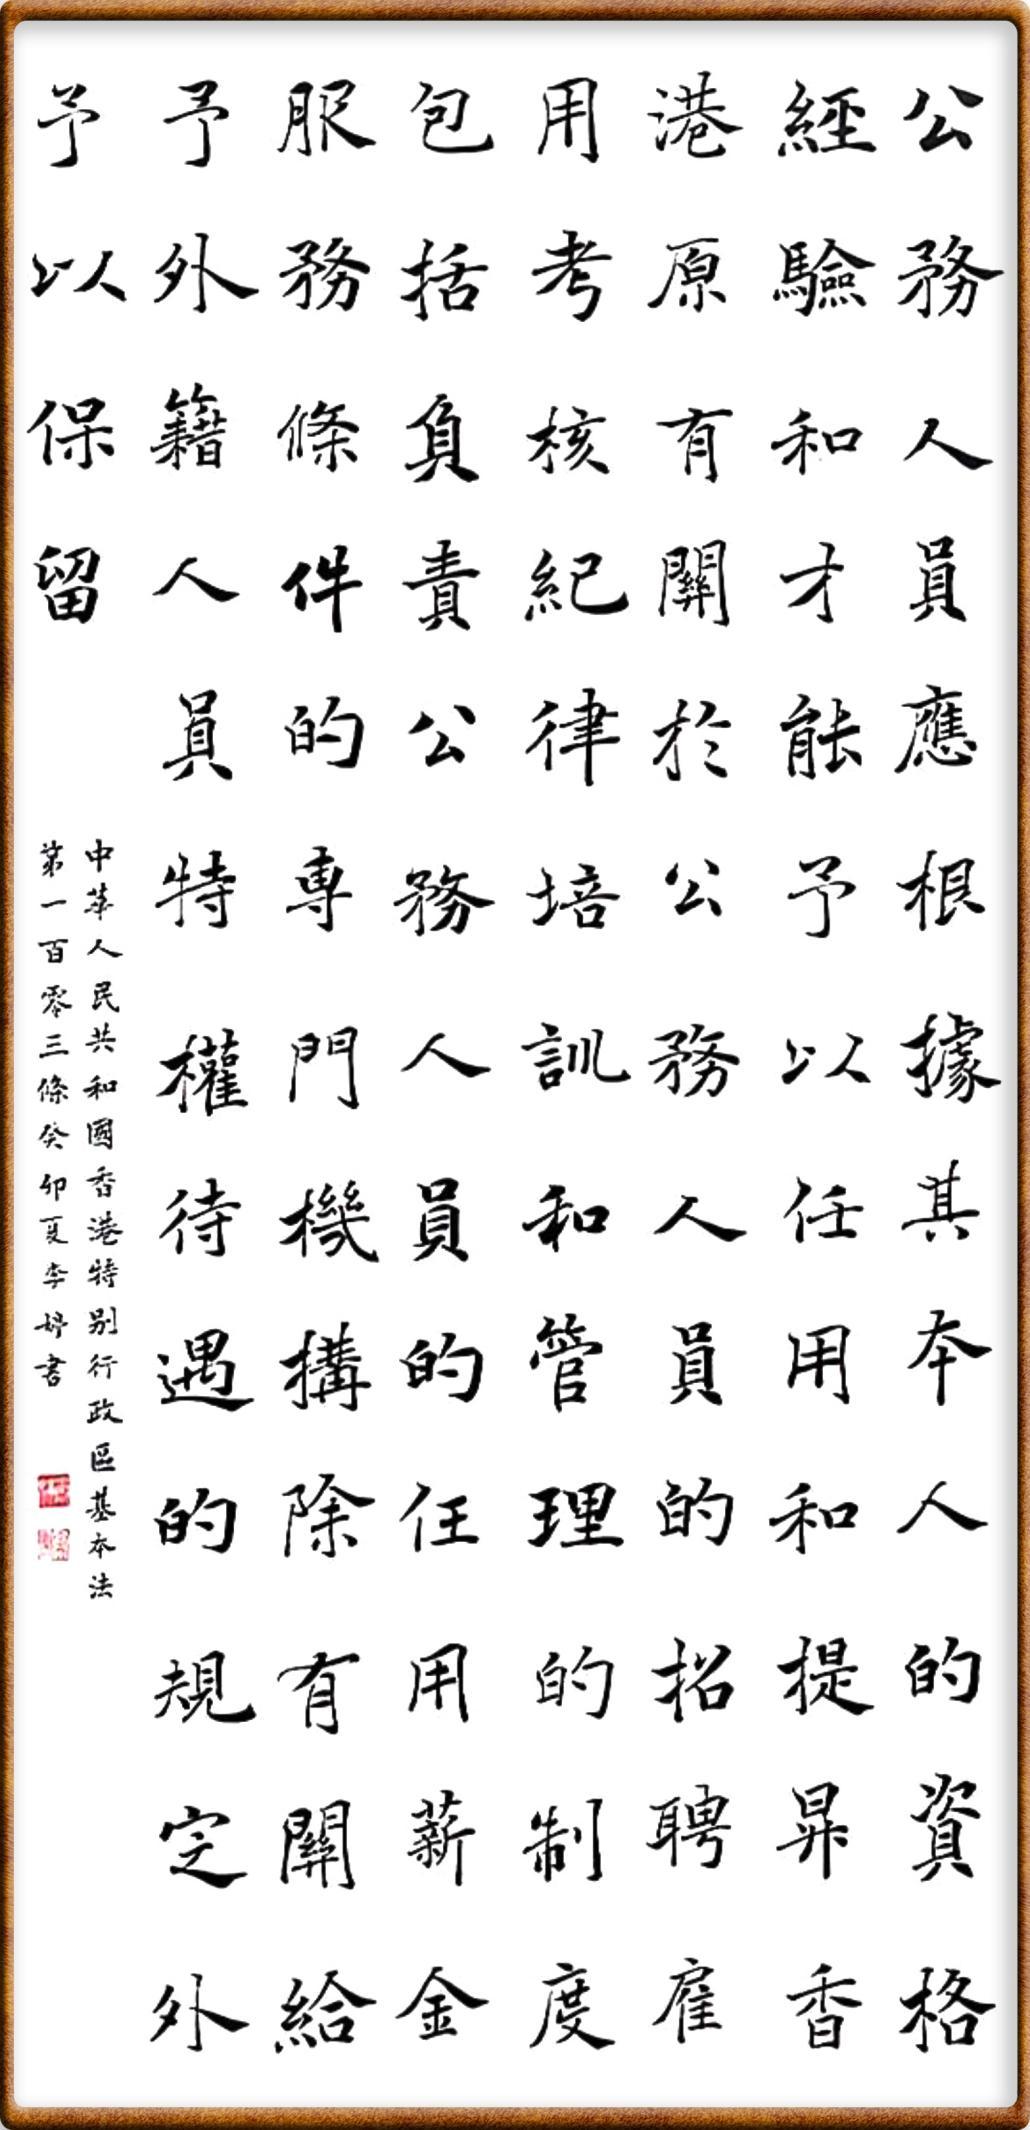 公務人員應根據其本人的資格
經驗和才能予以任用和提昇香
港原有關於公務人員的招聘雇
用考核紀律培訓和管理的制度
包括負責公務人員的任用薪金
服務條件的專門機構除有關給
予外籍人員特權待遇的規定外
予以保留
中華人民共和國香港特別行政區基本法
第一百零三條癸卯夏李婷書